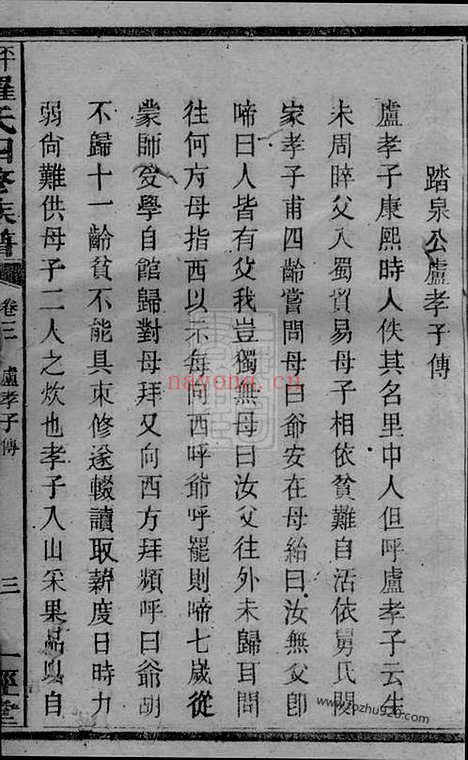 踏泉公盧孝子傳
盧孝子康熙時人佚其名里中人但呼盧孝子云生
未周晬父入蜀貿易母子相依貧難自活依舅氏閱
家孝子甫四齡嘗問母曰爺安在母紿曰汝無父卽
啼曰人皆有父我豈獨無母曰汝父往外未歸耳問
往何方母指西以示每向西呼爺呼罷則啼七歲從
蒙師受學自館歸對母拜又向西方拜頻呼曰爺胡
不歸十一齡貧不能具束修遂輟讀取薪度日時力
弱尙難供母子二人之炊也孝子入山采果品以自
羅氏四修族譜
卷三
盧孝子傳
三
一經堂
nayona.cn
www.zpzhu928.com